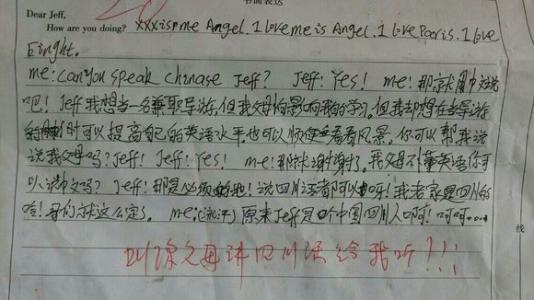 Dear Jeff,
How are you doing? xxx is me Angel. I love me is Angel. I love Paris. I love
Einght.
me: can you speak chinase Jeff? Jeff: Yes! me: 那就用中文说
吧! Jeff 我想当一名兼职导游,但我父母怕影响我的学习。但我却想在当导游
的同时可以提高自己的英语水平。也可以顺便看看风景。你可以帮我说
说我父母吗? Jeff! Jeff: Yes! me: 那就谢谢了。我父母不懂英语你可
以讲中文吗? Jeff: 那是必须的地! 说四川话都可以呀! 我老家是四川的
哈! 哥们就这么定了。 me: 原来Jeff是个中国四川人啊! 呵呵……
叫你父母讲四川话给我听?!!!
线